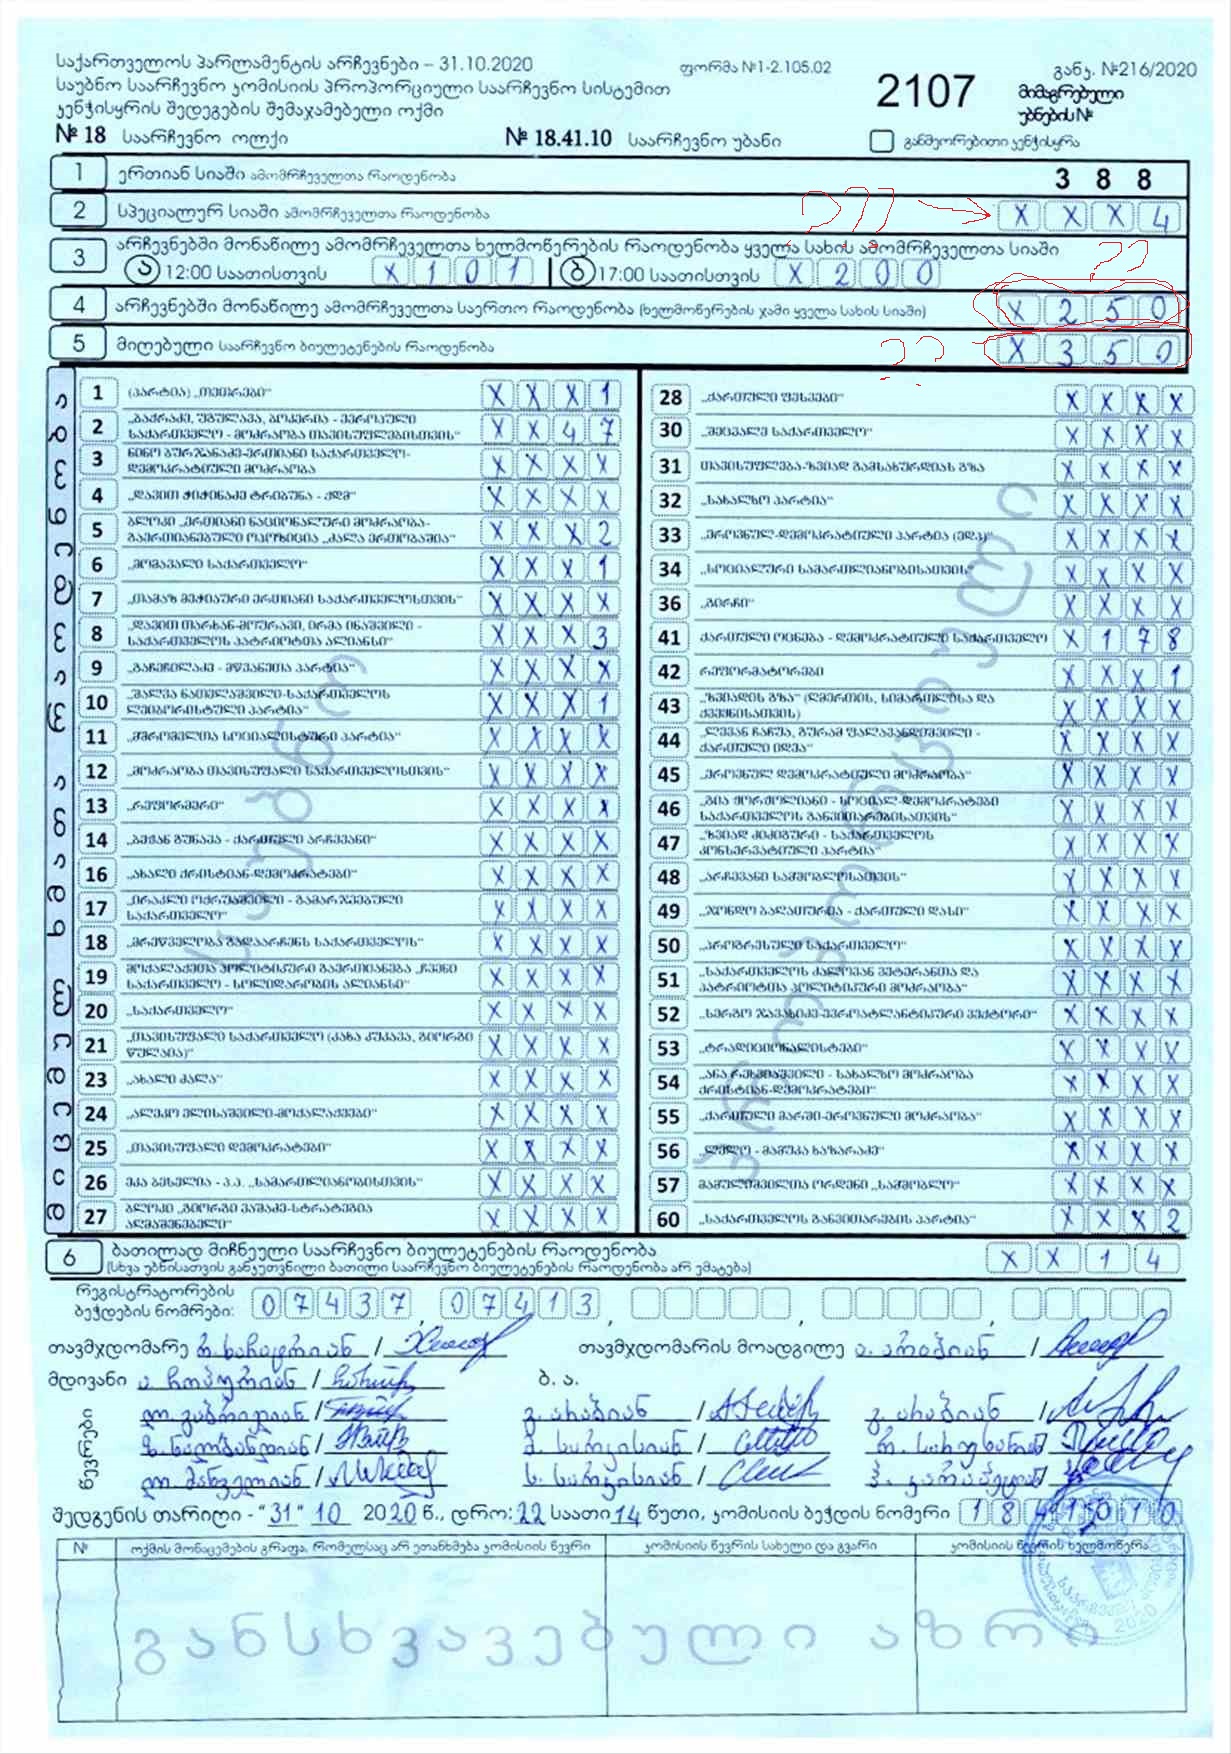 საქართველოს პარლამენტის არჩევნები – 31.10.2020
ფორმა №1-2.105.02
2107
განკ. №216/2020
საუბნო საარჩევნო კომისიის პროპორციული საარჩევნო სისტემით
მიმაგრებული
კენჭისყრის შედეგების შემაჯამებელი ოქმი
უბნების №
№ 18 საარჩევნო ოლქი № 18.41.10 საარჩევნო უბანი განმეორებითი კენჭისყრა
1 ერთიან სიაში ამომრჩეველთა რაოდენობა 3 8 8
2 სპეციალურ სიაში ამომრჩეველთა რაოდენობა X X X 4
3 არჩევნებში მონაწილე ამომრჩეველთა ხელმოწერების რაოდენობა ყველა სახის ამომრჩეველთა სიაში
ა 12:00 საათისთვის X 1 0 1 ბ 17:00 საათისთვის X 2 0 0
??
4 არჩევნებში მონაწილე ამომრჩეველთა საერთო რაოდენობა (ხელმოწერების ჯამი ყველა სახის სიაში) X 2 5 0
5 მიღებული საარჩევნო ბიულეტენების რაოდენობა ?? X 3 5 0
1 (პარტია) „თეთრები“ X X X 1
2 „ბაქრაძე, უგულავა, ბოკერია - ევროპული საქართველო - მოძრაობა თავისუფლებისთვის“ X X 4 7
3 ნინო ბურჯანაძე-ერთიანი საქართველო-დემოკრატიული მოძრაობა X X X X
4 „დავით ჭიჭინაძე ტრიბუნა - ქდმ“ X X X X
5 ბლოკი „ერთიანი ნაციონალური მოძრაობა-გაერთიანებული ოპოზიცია „ძალა ერთობაშია“ X X X 2
6 „მომავალი საქართველო“ X X X 1
7 „თამაზ მეჭიაური ერთიანი საქართველოსთვის“ X X X X
8 „დავით თარხან-მოურავი, ირმა ინაშვილი - საქართველოს პატრიოტთა ალიანსი“ X X X 3
9 „გაჩეჩილაძე - მწვანეთა პარტია“ X X X X
10 „შალვა ნათელაშვილი-საქართველოს ლეიბორისტული პარტია“ X X X 1
11 „მშრომელთა სოციალისტური პარტია“ X X X X
12 „მოძრაობა თავისუფალი საქართველოსთვის“ X X X X
13 „რეფორმერი“ X X X X
14 „ბექან გუნავა - ქართული არჩევანი“ X X X X
16 „ახალი ქრისტიან-დემოკრატები“ X X X X
17 „ირაკლი ოქრუაშვილი - გამარჯვებული საქართველო“ X X X X
18 „მრეწველობა გადაარჩენს საქართველოს“ X X X X
19 მოქალაქეთა პოლიტიკური გაერთიანება „ჩვენი საქართველო - სოლიდარობის ალიანსი“ X X X X
20 „საქართველო“ X X X X
21 „თავისუფალი საქართველო (კახა კუკავა, გიორგი წულაია)“ X X X X
23 „ახალი ძალა“ X X X X
24 „ალეკო ელისაშვილი-მოქალაქეები“ X X X X
25 „თავისუფალი დემოკრატები“ X X X X
26 ეკა ბესელია - პ.პ. „სამართლიანობისთვის“ X X X X
27 ბლოკი „გიორგი ვაშაძე-სტრატეგია აღმაშენებელი“ X X X X
28 „ქართული ფესვები“ X X X X
30 „შეცვალე საქართველო“ X X X X
31 თავისუფლება-ზვიად გამსახურდიას გზა X X X X
32 „სახალხო პარტია“ X X X X
33 „ეროვნულ-დემოკრატიული პარტია (ედპ)“ X X X X
34 „სოციალური სამართლიანობისათვის“ X X X X
36 „გირჩი“ X X X X
41 ქართული ოცნება - დემოკრატიული საქართველო X 1 7 8
42 რეფორმატორები X X X 1
43 „ზვიადის გზა“ (ღმერთის, სიმართლისა და ქვეყნისათვის) X X X X
44 „ლევან ჩაჩუა, გურამ ფალავანდიშვილი - ქართული იდეა“ X X X X
45 „ეროვნულ დემოკრატიული მოძრაობა“ X X X X
46 „გია ჟორჟოლიანი - სოციალ-დემოკრატები საქართველოს განვითარებისათვის“ X X X X
47 „ზვიად ძიძიგური - საქართველოს კონსერვატიული პარტია“ X X X X
48 „არჩევანი სამშობლოსათვის“ X X X X
49 „ჯონდო ბაღათურია - ქართული დასი“ X X X X
50 „პროგრესული საქართველო“ X X X X
51 „საქართველოს ძალოვან ვეტერანთა და პატრიოტთა პოლიტიკური მოძრაობა“ X X X X
52 „სერგო ჯავახიძე-ევროატლანტიკური ვექტორი“ X X X X
53 „ტრადიციონალისტები“ X X X X
54 „ანა რეხვიაშვილი - სახალხო მოძრაობა ქრისტიან-დემოკრატები“ X X X X
55 „ქართული მარში-ეროვნული მოძრაობა“ X X X X
56 „ლელო - მამუკა ხაზარაძე“ X X X X
57 მამულიშვილთა ორდენი „სამშობლო“ X X X X
60 „საქართველოს განვითარების პარტია“ X X X 2
6 ბათილად მიჩნეული საარჩევნო ბიულეტენების რაოდენობა X X 1 4
(სხვა უბნისათვის განკუთვნილი ბათილი საარჩევნო ბიულეტენების რაოდენობა არ ემატება)
რეგისტრატორების
ბეჭდების ნომრები: 07437, 07413, , ,
თავმჯდომარე რ. ხაჩატრიან / თავმჯდომარის მოადგილე /
მდივანი ა. ჩოპურიან / ბ. ა.
წევრები
დ. გაბრიელიან / გ. არაბიან / გ. არაბიან /
ზ. ნალბანდიან / ს. სარკისიან /
ს. სარკისიან /
შედგენის თარიღი - "31" 10 2020 წ., დრო: 22 საათი 14 წუთი, კომისიის ბეჭდის ნომერი
№ ოქმის მონაცემების გრაფა, რომელსაც არ ეთანხმება კომისიის წევრი კომისიის წევრის სახელი და გვარი კომისიის წევრის ხელმოწერა
განსხვავებული აზრი